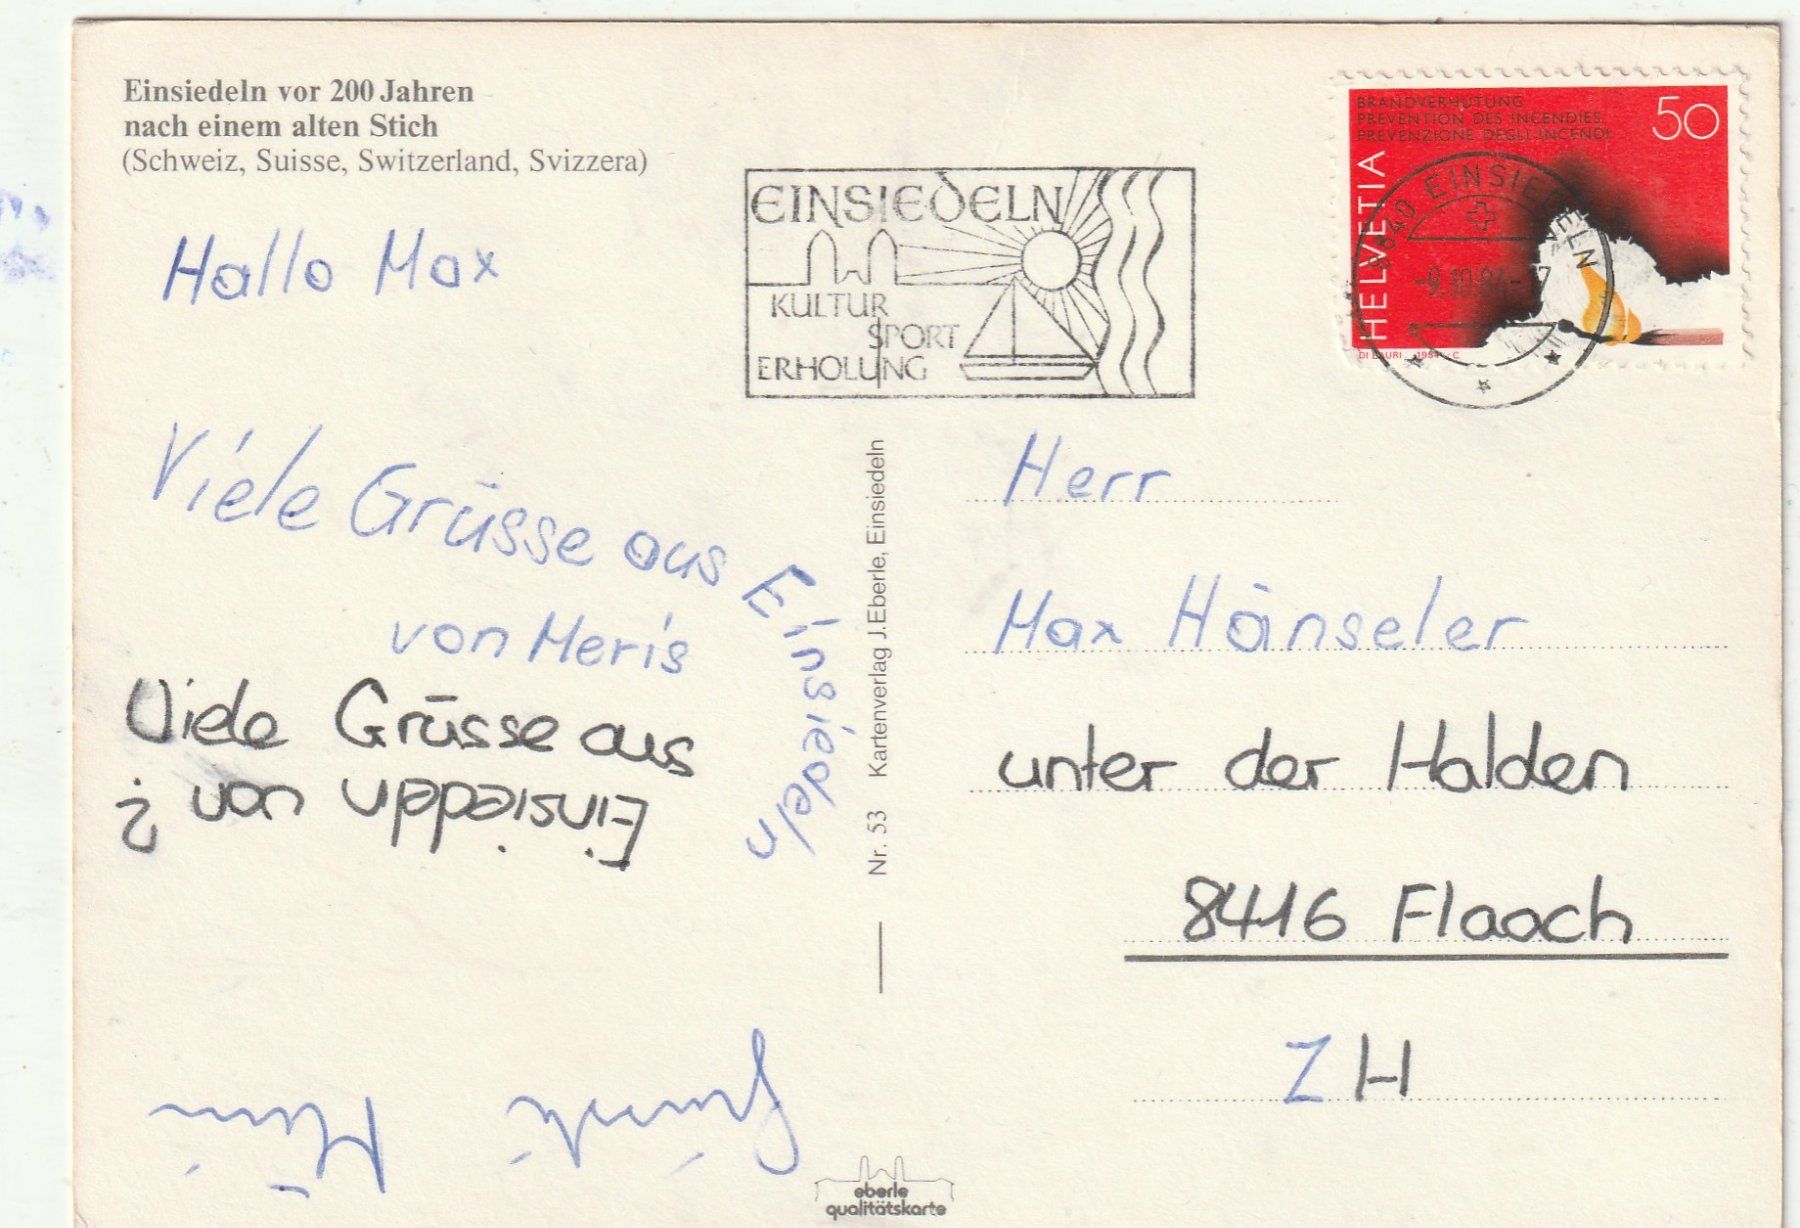 Einsiedeln vor 200 Jahren
nach einem alten Stich
(Schweiz, Suisse, Switzerland, Svizzera)
EINSIEDELN
KULTUR
SPORT
ERHOLUNG
BRANDVERHÜTUNG
PREVENTION DES INCENDIES
PREVENZIONE DEGLI INCENDI
50
HELVETIA
DI LAURI 1984 C
8840 EINSIEDELN
-9.10.84-17
Hallo Max
Viele Grüsse aus Einsiedeln
von Meris
Viele Grüsse aus
Einsiedeln von ?
Nr. 53 Kartenverlag J. Eberle, Einsiedeln
Herr
Max Hänseler
unter der Halden
8416 Flaach
ZH
eberle
qualitätskarte